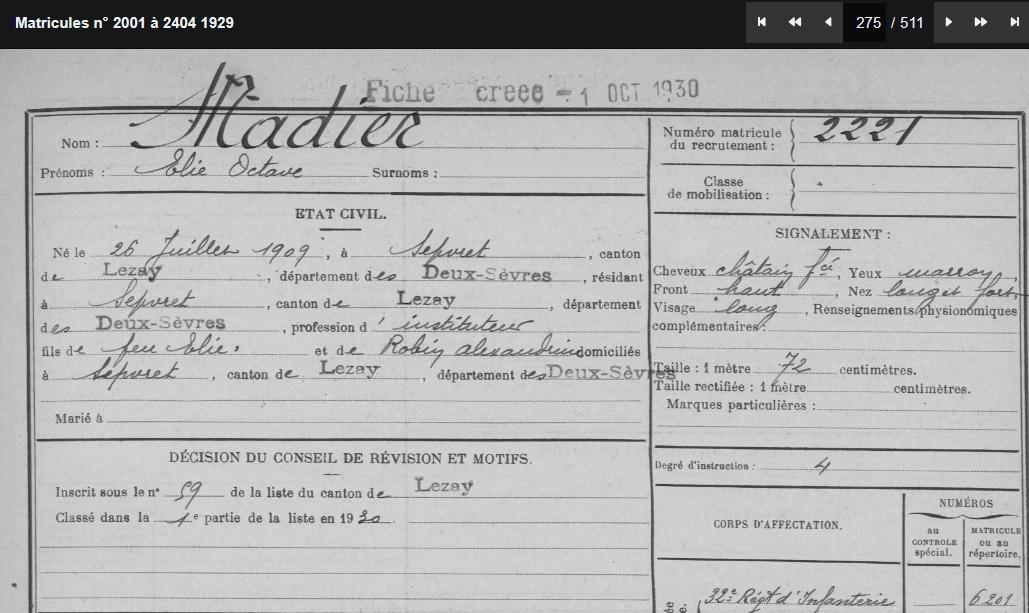 Matricules n° 2001 à 2404 1929
275 / 511
Fiche creee - 1 OCT 1930
Nom : Madier
Prénoms : Elie Octave Surnoms :
ETAT CIVIL.
Né le 26 Juillet 1909, à Sepvret, canton
de Lezay, département des Deux-Sèvres, résidant
à Sepvret, canton de Lezay, département
des Deux-Sèvres, profession d' instituteur
fils de feu Elie et de Robin alexandrine domiciliés
à Sepvret, canton de Lezay, département des Deux-Sèvres
Marié à
DÉCISION DU CONSEIL DE RÉVISION ET MOTIFS.
Inscrit sous le n° 59 de la liste du canton de Lezay
Classé dans la 1e partie de la liste en 1930.
Numéro matricule
du recrutement : 2221
Classe
de mobilisation :
SIGNALEMENT :
Cheveux châtain fcé, Yeux marron,
Front haut, Nez long et fort
Visage long, Renseignements physionomiques
complémentaires :
Taille : 1 mètre 72 centimètres.
Taille rectifiée : 1 mètre centimètres.
Marques particulières :
Degré d'instruction : 4
CORPS D'AFFECTATION.
NUMÉROS
au
CONTROLE
spécial.
MATRICULE
ou au
répertoire.
32e Régt d'Infanterie 6201